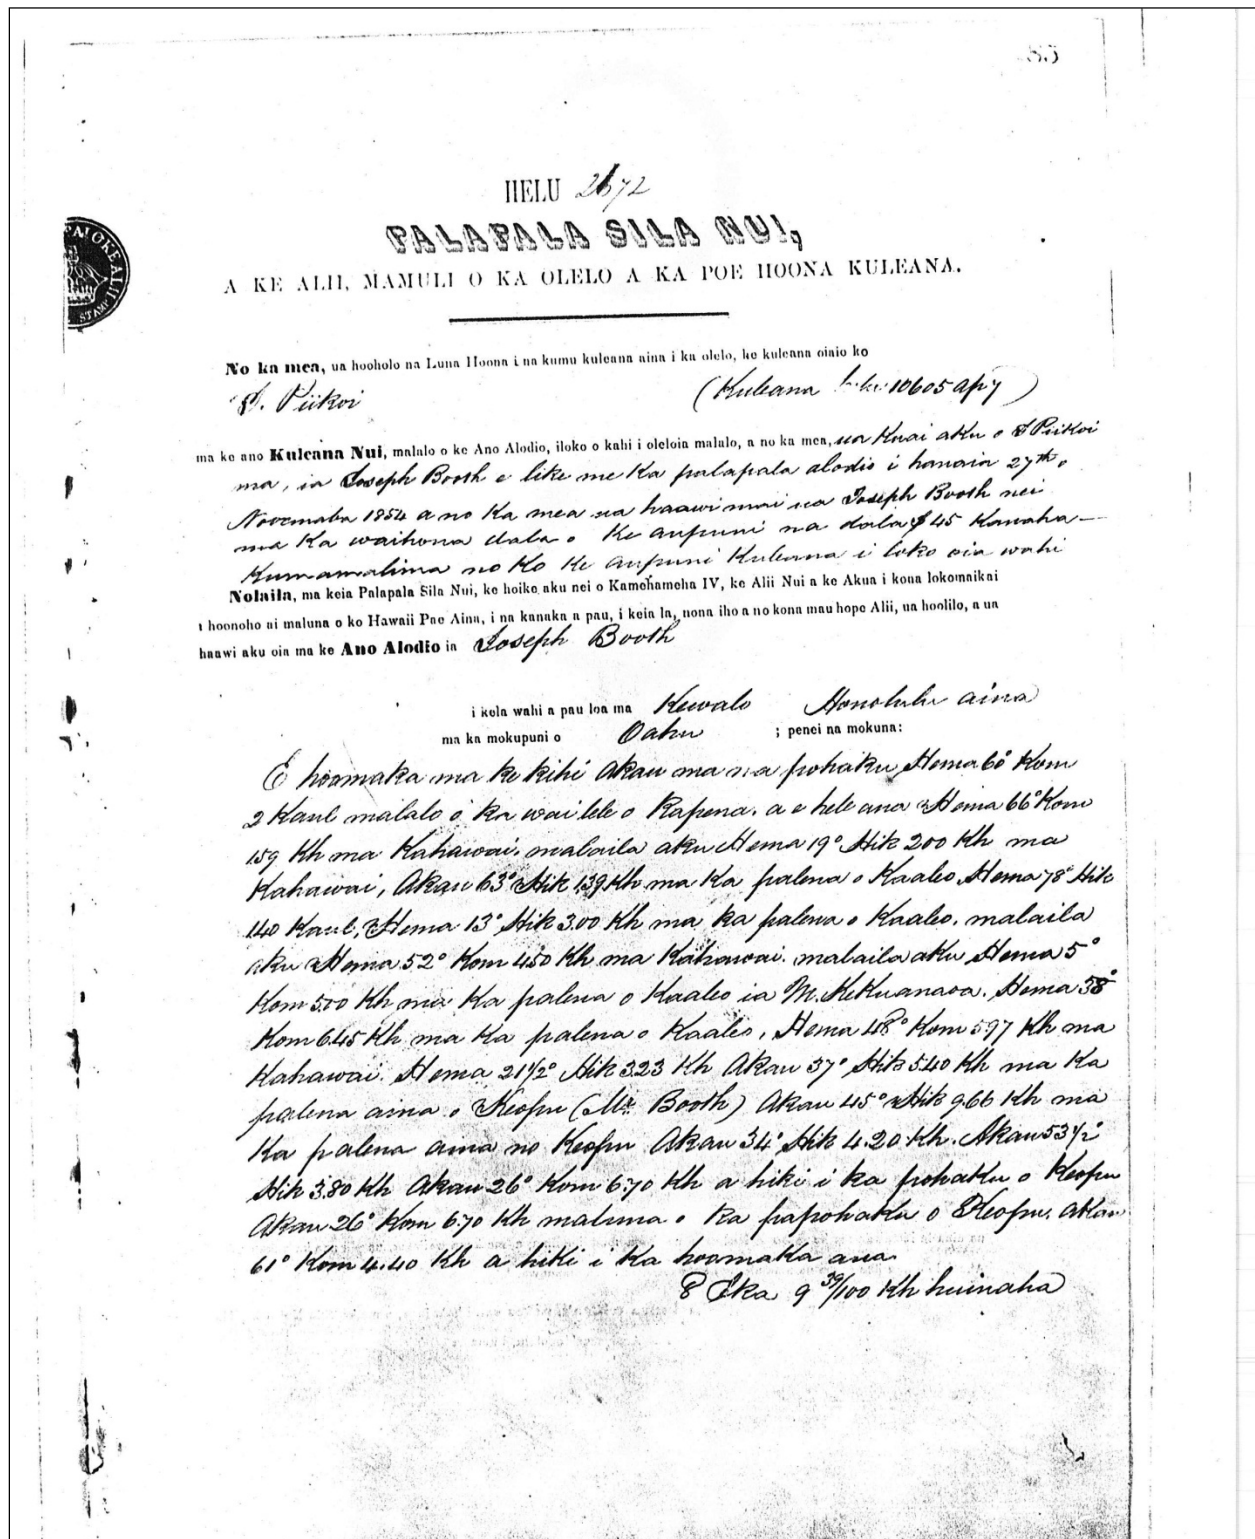 85
HELU 2672
PALAPALA SILA NUI,
A KE ALII, MAMULI O KA OLELO A KA POE HOONA KULEANA.
PAIOKEALII
STAMP
No ka mea, ua hooholo na Luna Hoona i na kumu kuleana aina i ka olelo, ke kuleana oiaio ko
Piikoi (Kuleana 10605 ap 7)
ma ke ano Kuleana Nui, malalo o ke Ano Alodio, iloko o kahi i oleloia malalo, a no ka mea, ua Kuai aku o J Piikoi
ma, ia Joseph Booth e like me ka palapala alodio i hanaia 27th o
Novemaba 1854 a no ka mea ua haawi mai ua Joseph Booth nei
ma ka waihona dala o Ke aupuni na dala $45 Kanaha—
Kumamalima no Ko Ke aupuni Kuleana i loko oia wahi
Nolaila, ma keia Palapala Sila Nui, ke hoike aku nei o Kamehameha IV, ke Alii Nui a ke Akua i kona lokomaikai
i hoonoho ai maluna o ko Hawaii Pae Aina, i na kanaka a pau, i keia la, nona iho a no kona mau hope Alii, ua hoolilo, a ua
haawi aku oia ma ke Ano Alodio ia Joseph Booth
i kela wahi a pau loa ma Kewalo Honolulu aina
ma ka mokupuni o Oahu ; penei na mokuna:
E hoomaka ma ke kihi Akau ma na pohaku Hema 60° Kom
2 Kaul malalo o ka wai lele o Kapena. a e hele ana Hema 66° Kom
159 Kh ma Kahawai. malaila aku Hema 19° Hik 200 Kh ma
Kahawai, Akau 63° Hik 139 Kh ma Ka palena o Kaaleo Hema 78° Hik
140 Kaul, Hema 13° Hik 3.00 Kh ma ka palena o Kaaleo. malaila
aku Hema 52° Kom 450 Kh ma Kahawai. malaila aku Hema 5°
Kom 500 Kh ma Ka palena o Kaaleo ia M. Kekuanaoa. Hema 38°
Kom 645 Kh ma Ka palena o Kaaleo, Hema 48° Kom 597 Kh ma
Kahawai. Hema 21½° Hik 323 Kh Akau 37° Hik 540 Kh ma Ka
palena aina o Keopu (Mr. Booth) Akau 45° Hik 9.66 Kh ma
Ka palena aina no Keopu Akau 34° Hik 4.20 Kh. Akau 53½°
Hik 3.80 Kh Akau 26° Kom 6.70 Kh a hiki i ka pohaku o Keopu
Akau 26° Kom 6.70 Kh maluna o ka papohaku o Keopu. akau
61° Kom 4.40 Kh a hiki i ka hoomaka ana.
8 Eka 9 39/100 Kh huinaha